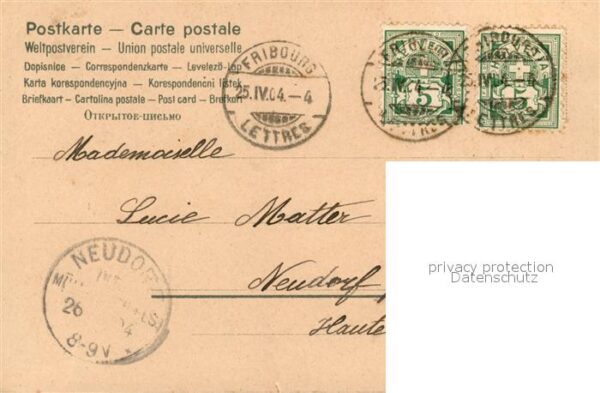 Postkarte — Carte postale
Weltpostverein — Union postale universelle
Dopisnice — Correspondenzkarte — Levelező-lap
Karta korespondencyjna — Korespondenční lístek
Briefkaart - Cartolina postale - Post card - Brefkort
Открытое-письмо
FRIBOURG
25.IV.04.–4
LETTRES
FRIBOURG
25.IV.04.–4
LETTRES
5
FRIBOURG
IV.04.
LETTRES
5
Mademoiselle
Lucie Matter
Neudorf
Haute
NEUDORF
26
04
8-9V
privacy protection
Datenschutz